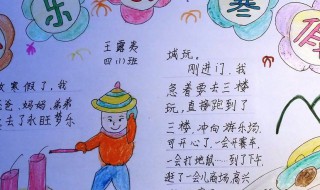 乐
寒
假
王露夷
四(1)班
放寒假了，我
爸爸、妈妈、弟弟
去了永旺梦乐
城玩。
刚进门，我
急着要去三楼
玩，直接跑到了
三楼，冲向游乐场。
可开心了，一会开赛车，
一会打地鼠……到了下午，
逛了一会儿商场，高兴